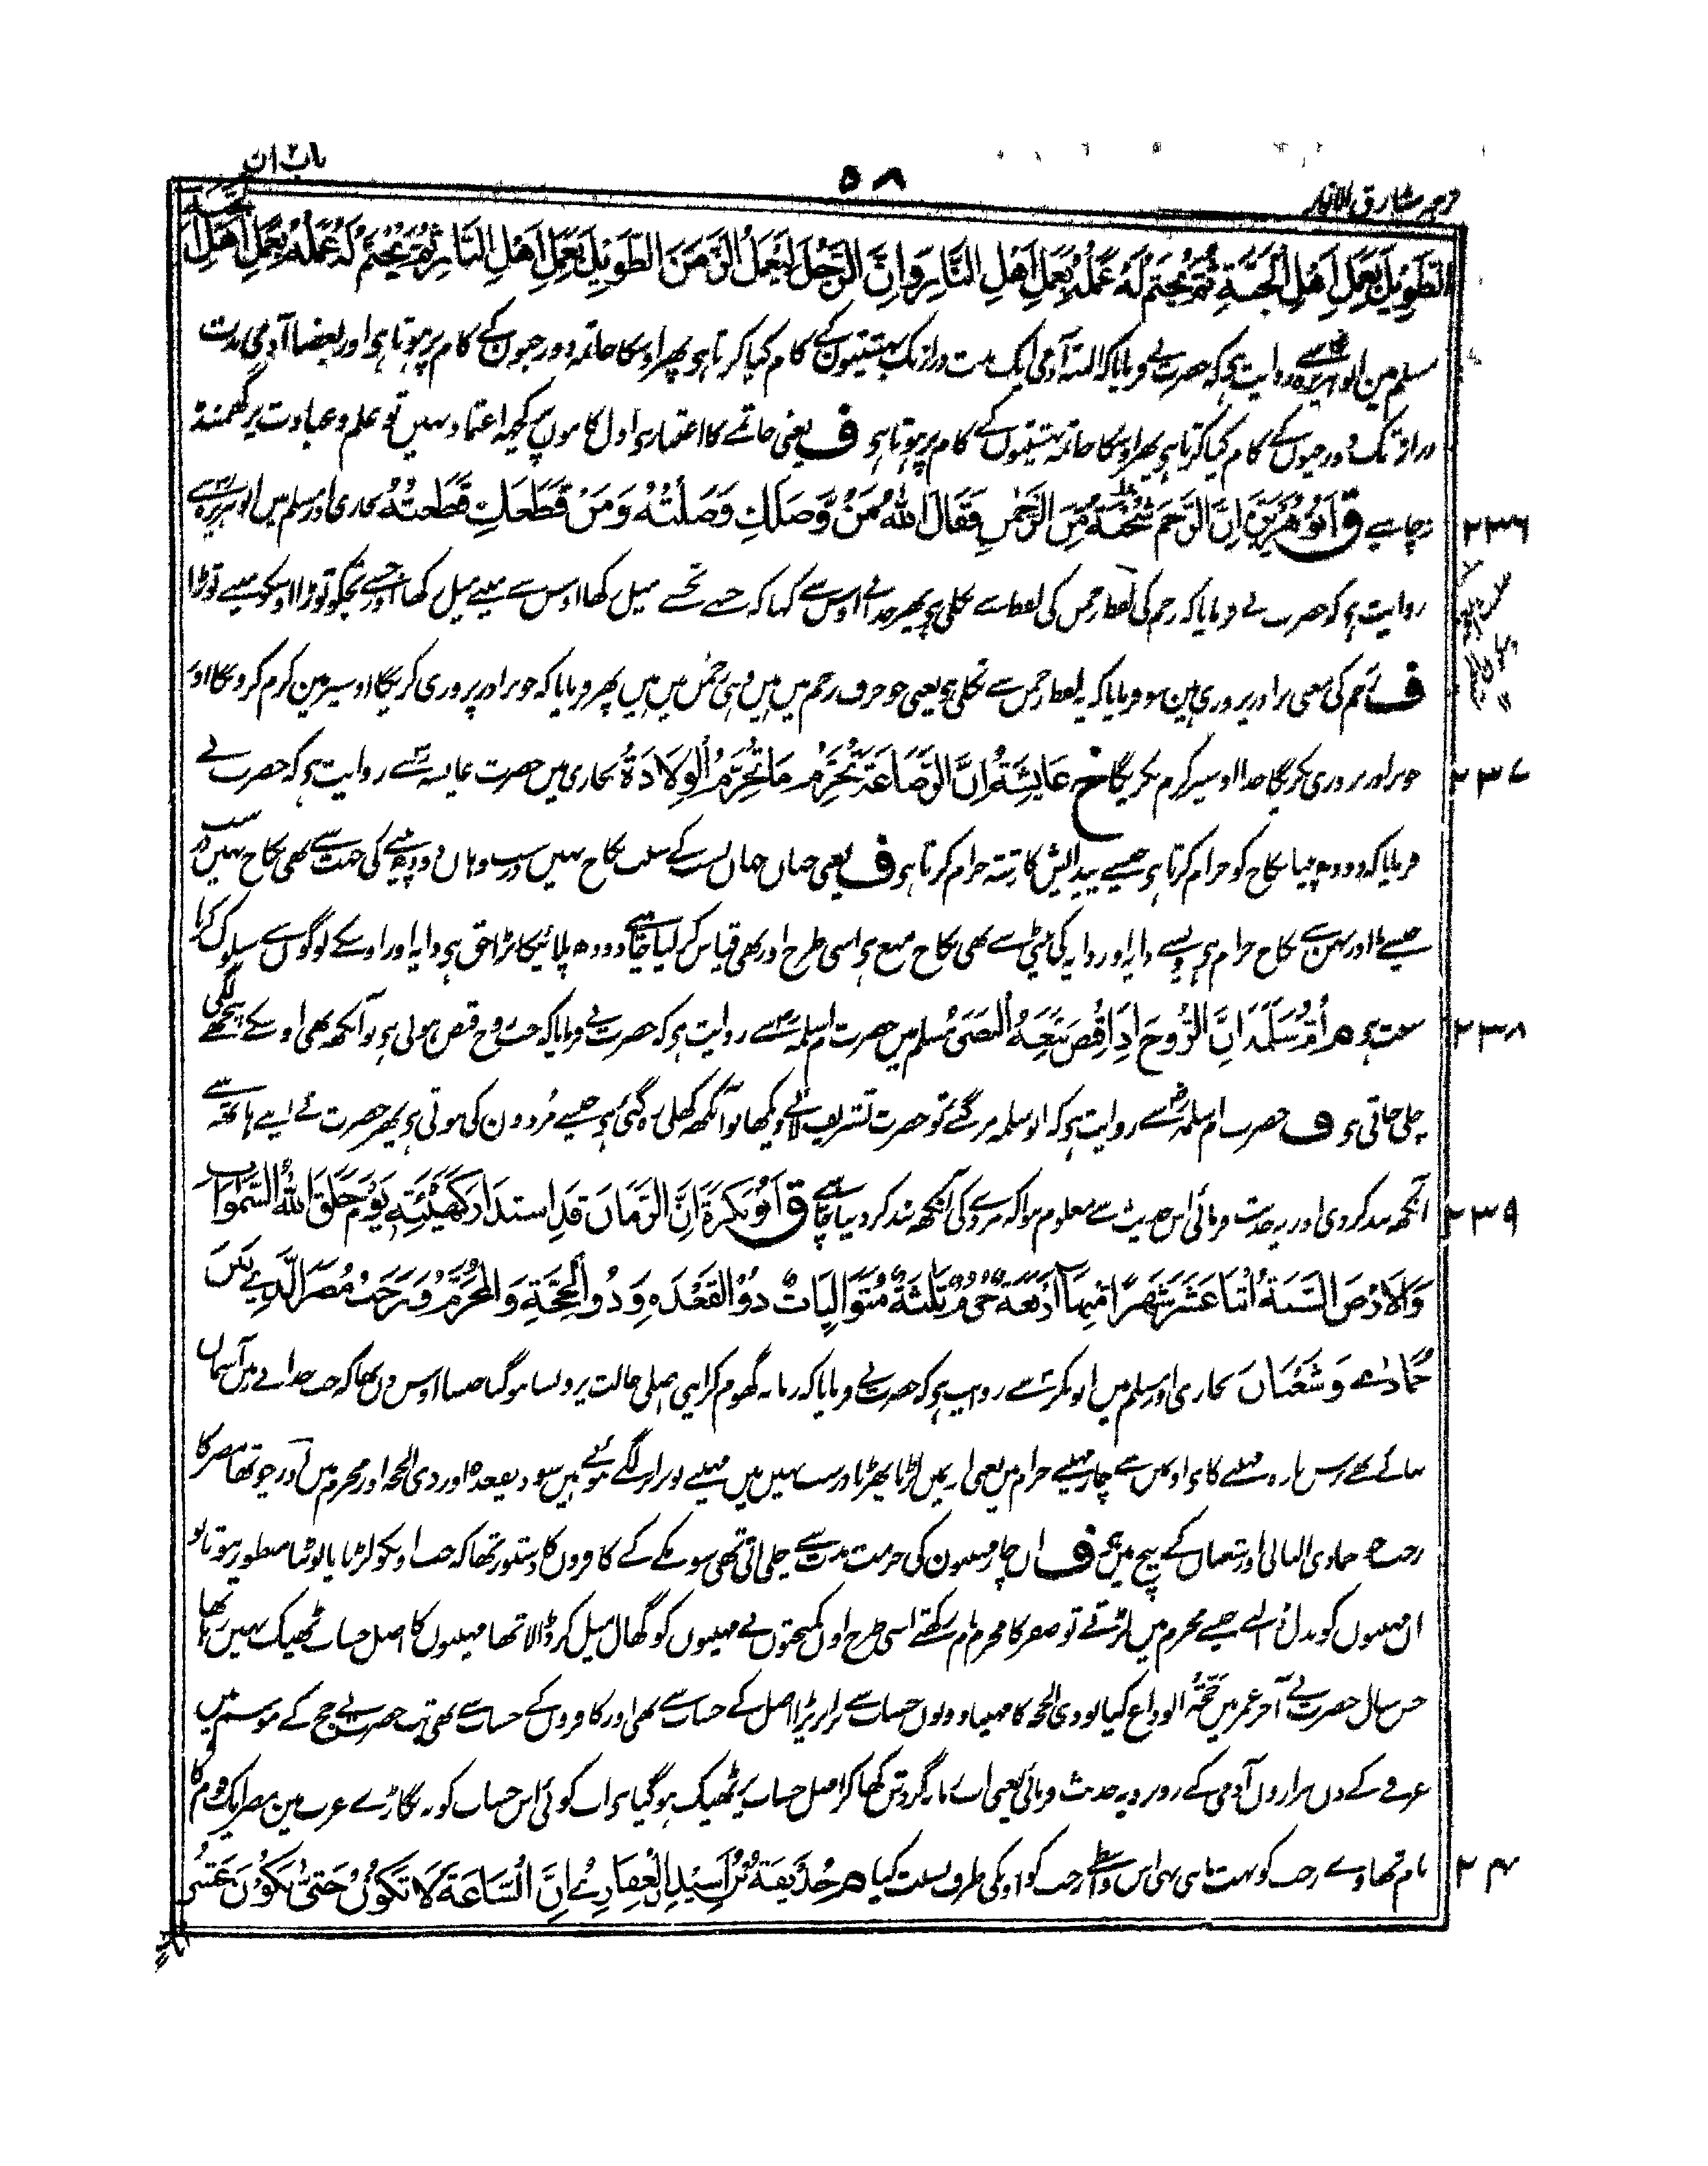 باب ان
۵۸
ترجمہ مشارق الانوار
الطَّوِيْلَ بِعَمَلِ اَهْلِ الْجَنَّةِ ثُمَّ يُخْتَمُ لَهُ عَمَلُهُ بِعَمَلِ اَهْلِ النَّارِ وَاِنَّ الرَّجُلَ لَيَعْمَلُ الزَّمَنَ الطَّوِيْلَ بِعَمَلِ اَهْلِ النَّارِ ثُمَّ يُخْتَمُ لَهُ عَمَلُهُ بِعَمَلِ اَهْلِ الْجَنَّةِ
مسلم مین ابو ہریرہ سے روایت ہی کہ حضرت نے فرمایا کہ البتہ آدمی ایک مدت دراز تک بہشتیون کے کام کیا کرتا ہی پھر اوسکا خاتمہ دوزخیون کے کام پر ہوتا ہی اور بعضا آدمی مدت
دراز تک دوزخیوں کے کام کیا کرتا ہی پھر اوسکا خاتمہ بہشتیوں کے کام پر ہوتا ہی ف یعنی خاتمے کا اعتبار ہی اول کاموں پر کچھ اعتماد نہیں تو علم و عبادت پر گھمنڈ
نچاہیے ق اَبُوْ هُرَيْرَةَ اِنَّ الرَّحِمَ شُجْنَةٌ مِّنَ الرَّحْمٰنِ فَقَالَ اللهُ مَنْ وَّصَلَكِ وَصَلْتُهُ وَمَنْ قَطَعَكِ قَطَعْتُهُ بخاری اور مسلم میں ابو ہریرہ سے
۲۳۶
روایت ہی کہ حضرت نے فرمایا کہ رحم کی لفظ رحمن کی لفظ سے نکلی ہی پھر خدا نے اوس سے کہا کہ جسنے تجھے میل رکھا اوس سے مینے میل رکھا اور جسنے تجکو توڑا اوسکو مینے توڑا
ف رحم کی معنی برادر پروری ہین سو فرمایا کہ یہ لفظ رحمن سے نکلی ہی یعنی جو حرف رحم میں ہیں وہی رحمٰن میں ہیں پھر فرمایا کہ جو برادر پروری کریگا اوسپر مین کرم کرونگا اور
جو برادر پروری نکریگا خدا اوسپر کرم نکریگا خ عَايِشَةُ اِنَّ الرَّضَاعَةَ تُحَرِّمُ مَا تُحَرِّمُ الْوِلَادَةُ بخاری میں حضرت عایشہ سے روایت ہی کہ حضرت نے
۲۳۷
فرمایا کہ دودھ پینا نکاح کو حرام کرتا ہی جیسے پیدایش کا رشتہ حرام کرتا ہی ف یعنی جہاں جہاں نسب کے سبب نکاح نہیں درست وہاں دودھ پینے کی جہت سے بھی نکاح نہیں درست
جیسے ما اور بہن سے نکاح حرام ہی ویسے دایہ اور دایہ کی بیٹی سے بھی نکاح منع ہی اسی طرح اور بھی قیاس کر لیا چاہیے دودھ پلائیکا بڑا حق ہی دایہ اور اوسکے لوگوں سے سلوک کرنا
سنت ہی م اُمُّ سَلَمَةَ اِنَّ الرُّوْحَ اِذَا قُبِضَ تَبِعَهُ الْبَصَرُ مسلم میں حضرت ام سلمہ سے روایت ہی کہ حضرت نے فرمایا کہ جب روح قبض ہوتی ہی تو آنکھ بھی اوسکے پیچھے لگی
۲۳۸
چلی جاتی ہی ف حضرت ام سلمہ سے روایت ہی کہ ابو سلمہ مر گئے تو حضرت تشریف لائے دیکھا تو آنکھ کھلی رہ گئی ہی جیسے مُردون کی ہوتی ہی پھر حضرت نے اپنے ہاتھ سے
آنکھ بند کر دی اور یہ حدیث فرمائی اس حدیث سے معلوم ہوا کہ مردے کی آنکھ بند کر دینا چاہیے ق اَبُوْ بَكْرَةَ اِنَّ الزَّمَانَ قَدِ اسْتَدَارَ كَهَيْئَتِهِ يَوْمَ خَلَقَ اللهُ السَّمٰوَاتِ
۲۳۹
وَالْاَرْضَ السَّنَةُ اثْنَا عَشَرَ شَهْرًا مِّنْهَا اَرْبَعَةٌ حُرُمٌ ثَلٰثَةٌ مُّتَوَالِيَاتٌ ذُو الْقَعْدَةِ وَذُو الْحِجَّةِ وَالْمُحَرَّمُ وَرَجَبُ مُضَرَ الَّذِيْ بَيْنَ
جُمَادٰے وَشَعْبَانَ بخاری اور مسلم میں ابو بکرہ سے روایت ہی کہ حضرت نے فرمایا کہ زمانہ گھوم کر اپنی اصلی حالت پر ویسا ہو گیا جیسا اوس دن تھا کہ جب خدا نے زمین آسمان
بنائے تھے برس بارہ مہینے کا ہی اونمیں سے چار مہینے حرام ہیں یعنی اونمیں لڑنا بھڑنا درست نہیں تین مہینے تو برابر لگے ہوئے ہیں سو ذیقعدہ اور ذی الحجہ اور محرم ہیں اور چوتھا مضر کا
رجب جمادی الثانی اور شعبان کے بیچ میں ہی ف ان چار مہینون کی حرمت مدت سے چلی آتی تھی سو مکے کے کافروں کا دستور تھا کہ جب اونکو لڑنا یا لوٹنا منظور ہوتا تو
ان مہینوں کو بدل ڈالتے جیسے محرم میں لڑتے تو صفر کا محرم نام رکھتے اسی طرح اون کمبختوں نے مہینوں کو گھال میل کر ڈالا تھا مہینوں کا اصل حساب ٹھیک نہیں رہا تھا
جس سال حضرت نے آخر عمر میں حجۃ الوداع کیا تو ذی الحجہ کا مہینا دونوں حساب سے برابر پڑا اصل کے حساب سے بھی اور کافروں کے حساب سے بھی تب حضرت نے حج کے موسم میں
عرفے کے دن ہزاروں آدمی کے روبرو یہ حدیث فرمائی یعنی اب زمانہ گردش کھا کر اصل حساب پر ٹھیک ہو گیا ہی اب کوئی اس حساب کو نہ بگاڑے عرب مین مضر ایک قوم کا
نام تھا وے رجب کو بہت مانتے تھے اس واسطے رجب کو اونکی طرف نسبت کیا م حُذَيْفَةُ بْنُ اَسِيْدِ الْغِفَارِيُّ اِنَّ السَّاعَةَ لَا تَكُوْنُ حَتّٰى تَكُوْنَ عَشْرُ
۲۴۰